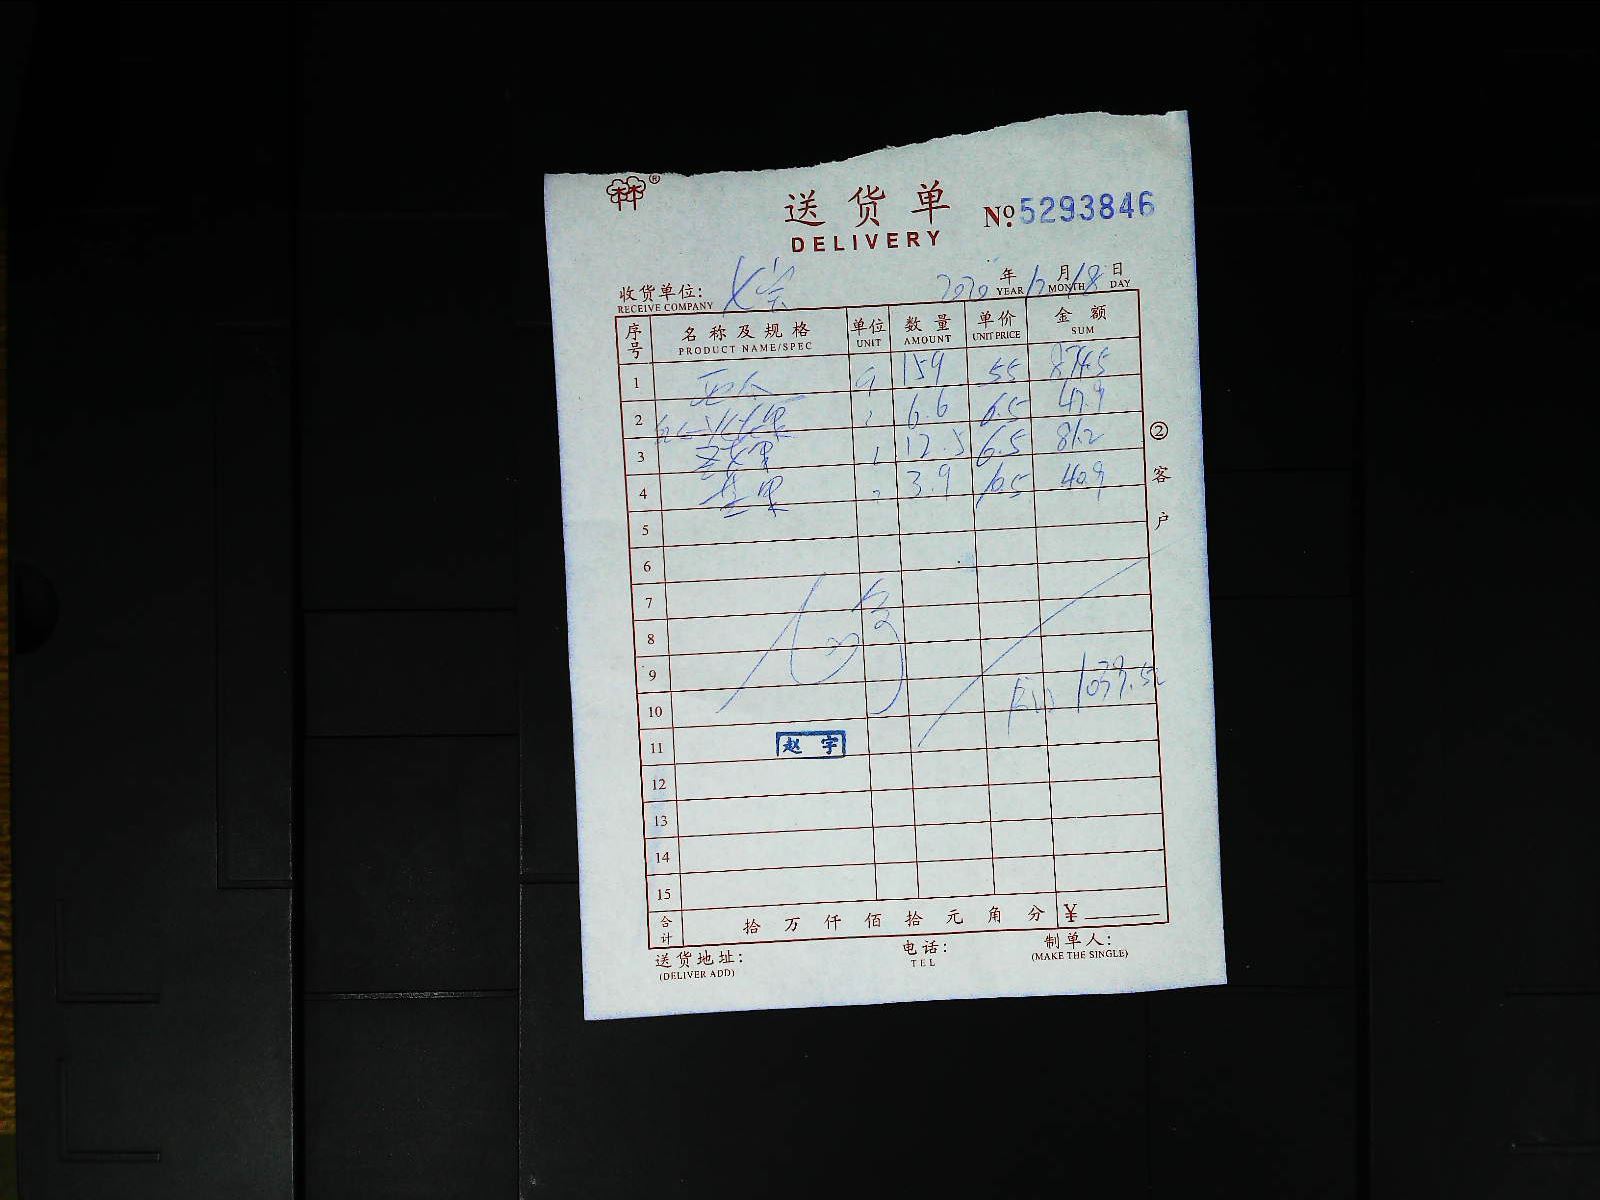 林®
送货单
DELIVERY
No. 5293846
收货单位:
RECEIVE COMPANY
2020 年 YEAR 12 月 MONTH 18 日 DAY
序号 名称及规格 PRODUCT NAME/SPEC 单位 UNIT 数量 AMOUNT 单价 UNIT PRICE 金额 SUM
1 159 55 874.5
2 6.6 6.5 47.9
3 12.5 6.5 81.2
4 苹果 3.9 10.5 40.9
5
6
7
8
9
10 1039.5
11 赵宇
12
13
14
15
合计 拾 万 仟 佰 拾 元 角 分 ¥
② 客户
送货地址:
(DELIVER ADD)
电话:
TEL
制单人:
(MAKE THE SINGLE)